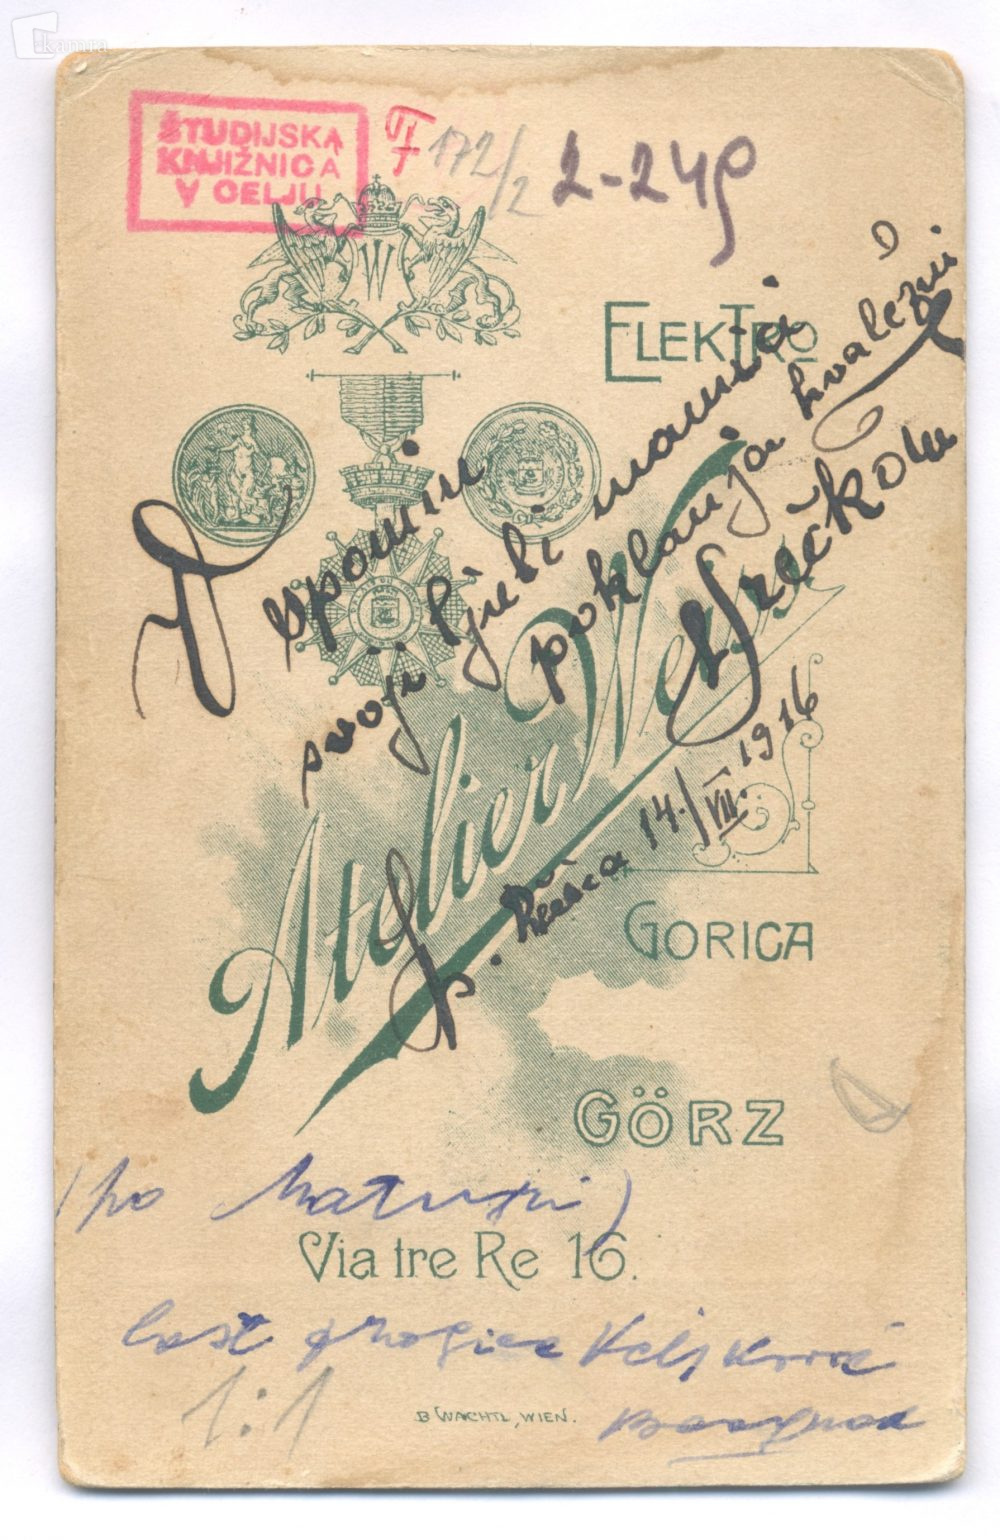 kamra
ŠTUDIJSKA
KNJIŽNICA
V CELJU
VI
172/2 2-249
W
ELEKTRO
V
spomin
svoji ljubi mamici
poklanja hvaležni
Srečko
14./VII. 1916
Atelier Weiss
GORICA
GÖRZ
(po Maturi)
Via tre Re 16.
last
1:1
B WACHTL, WIEN.